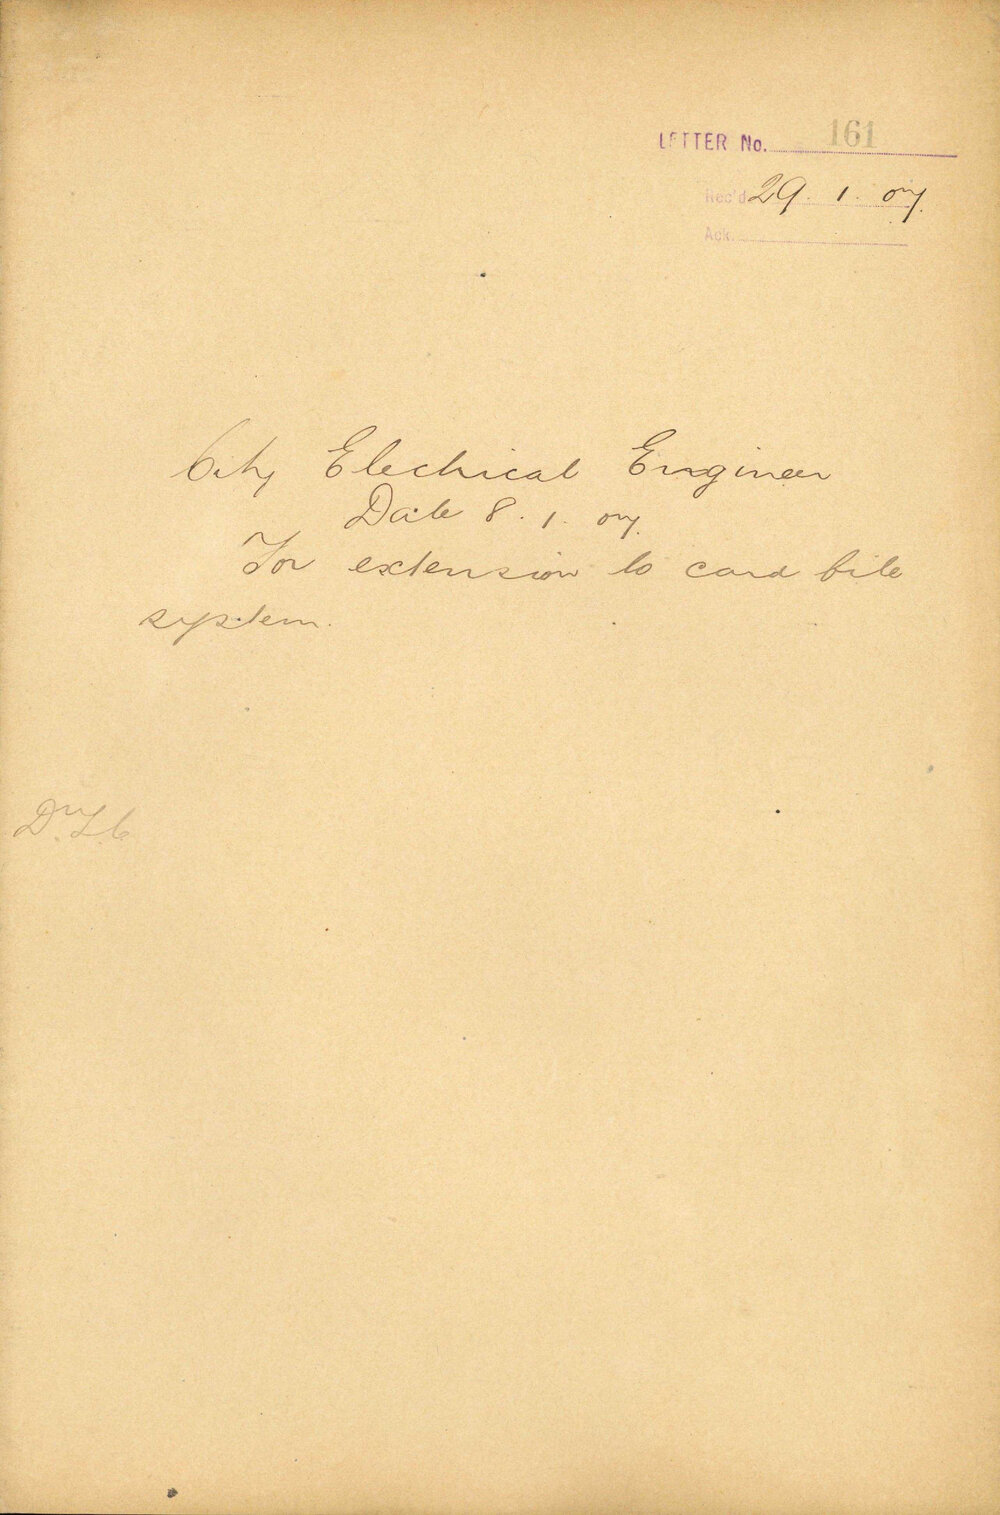 LETTER No. 161
Rec'd 29. 1. 07.
Ack.
City Electrical Engineer
Date 8. 1. 07.
For extension to card file
system.